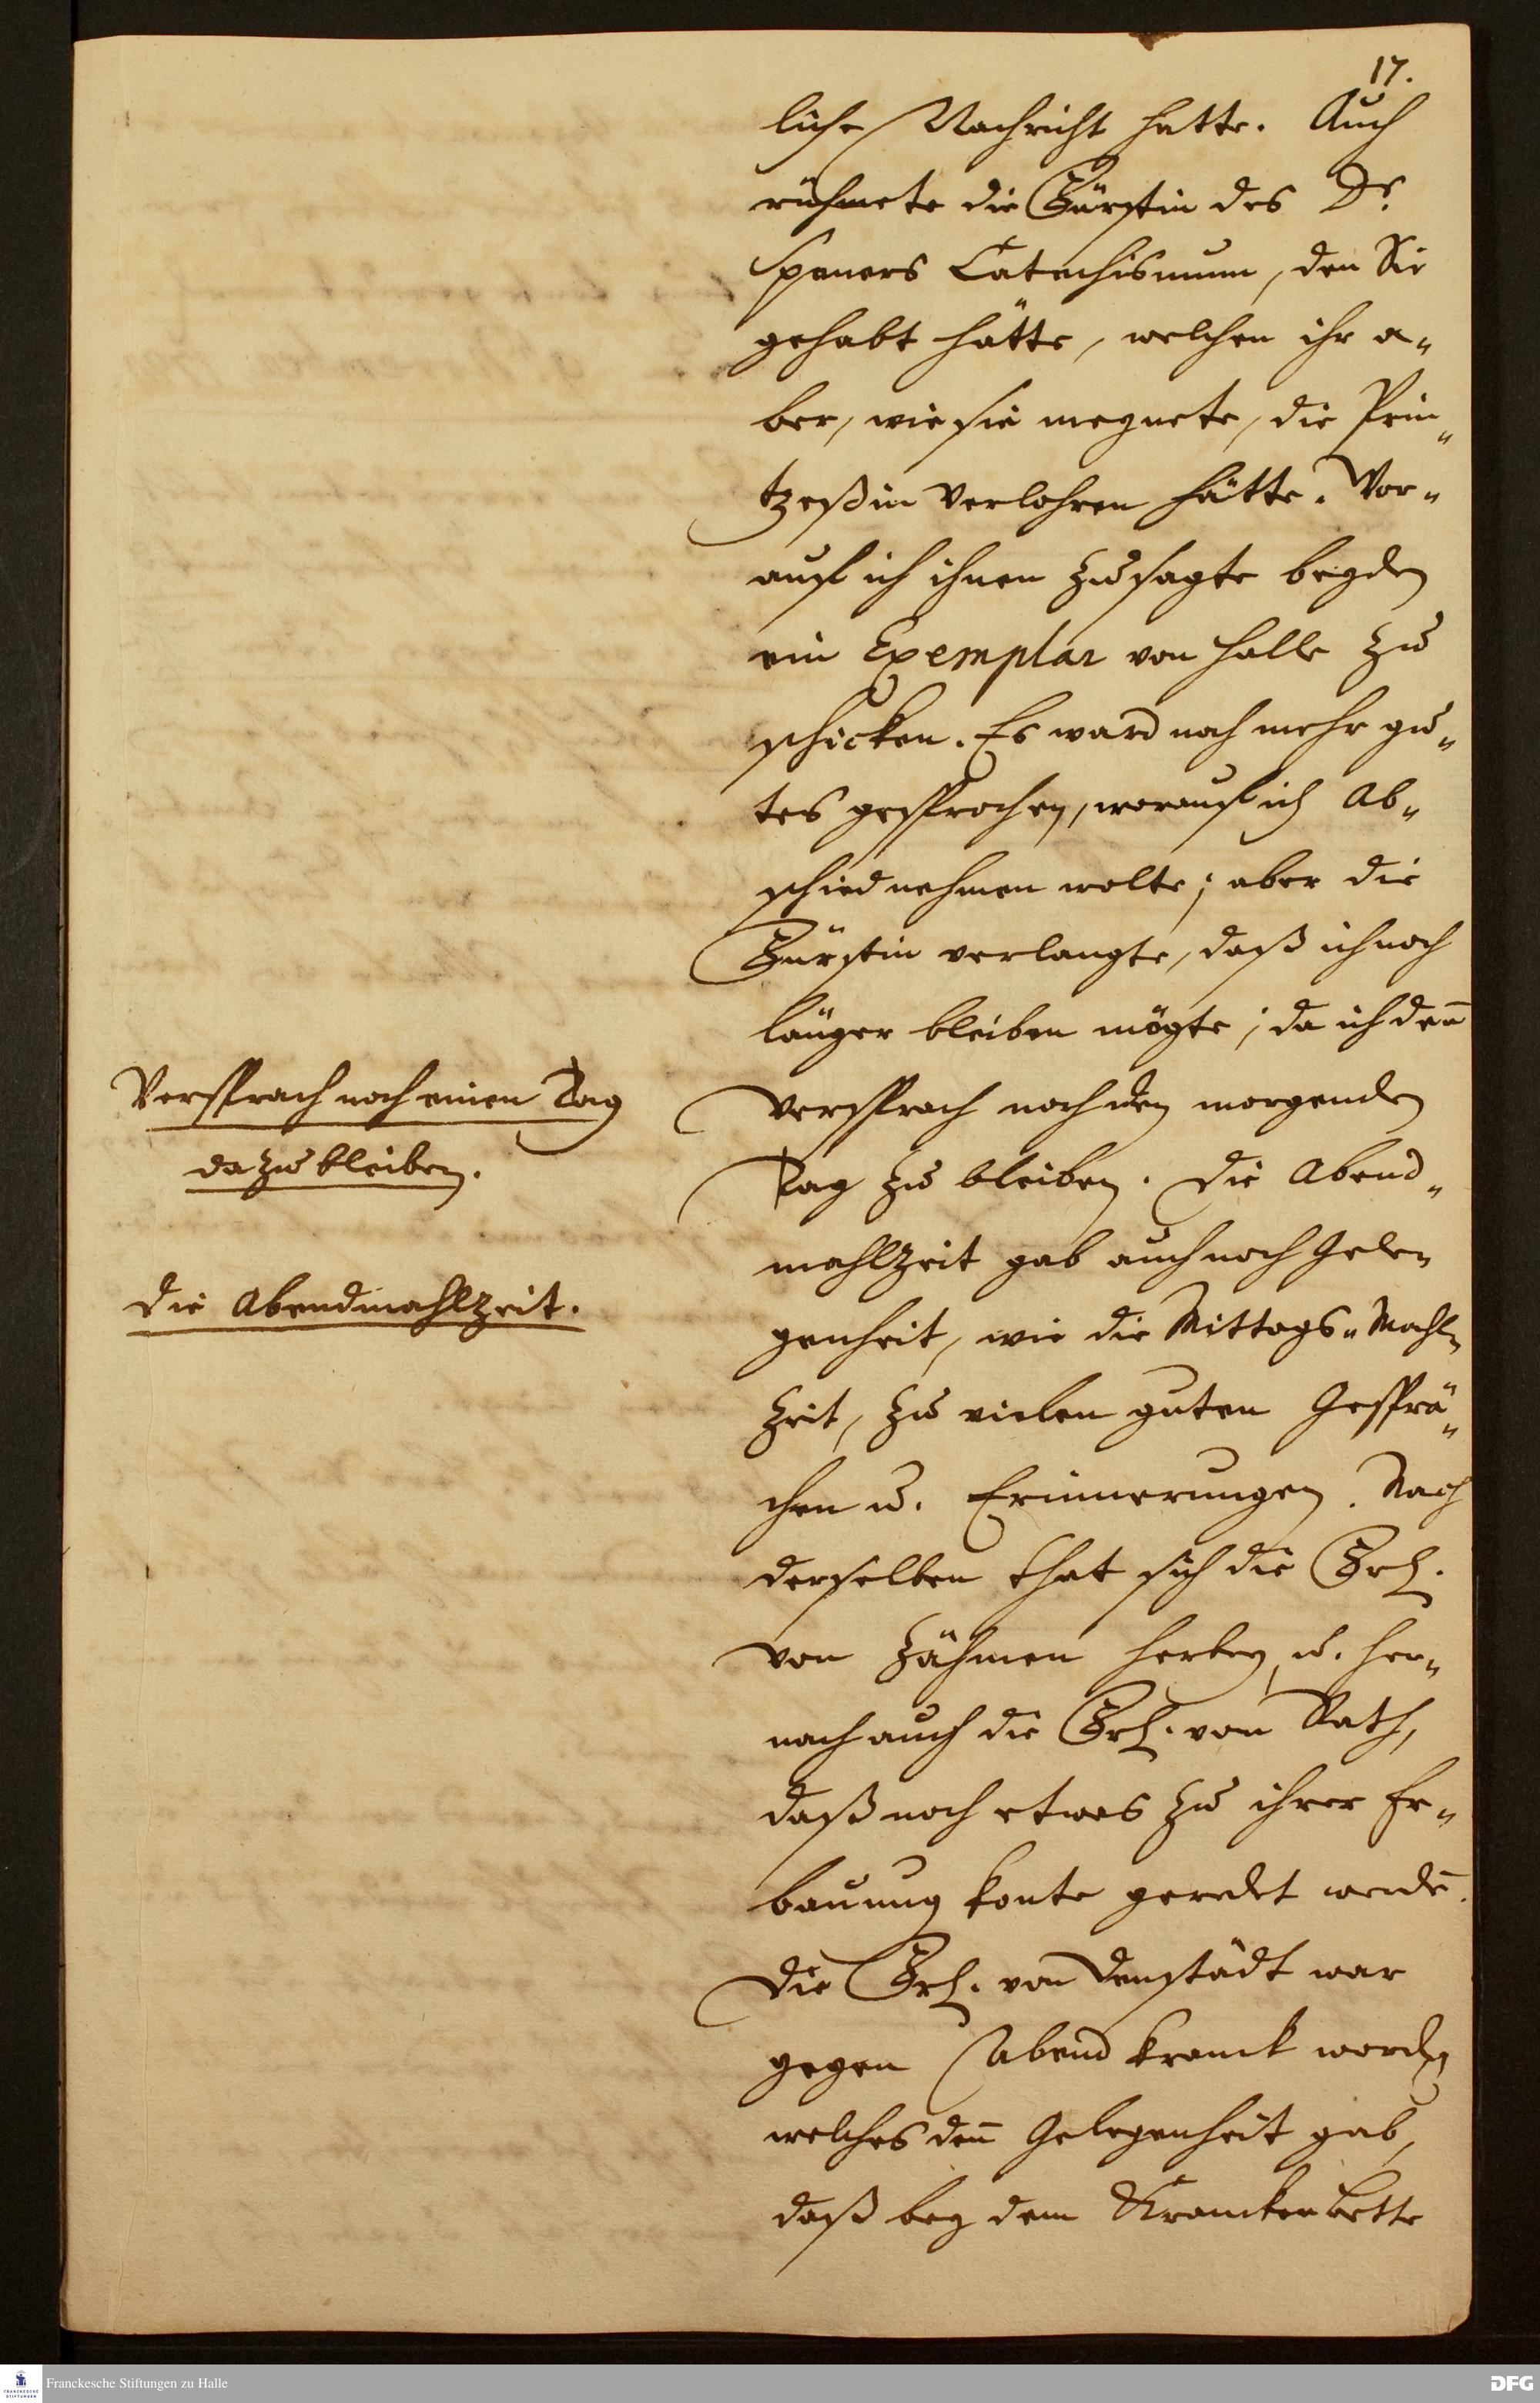 17.
liche Nachricht hatte. Auch
rühmete die Fürstin des Dr.
Speners Catechismum, den Sie
gehabt hätte, welchen ihr a„
ber, wie sie meynete, die Prin„
tzeßin verlohren hätte. Wor„
auf ich ihnen zusagte beyden
ein Exemplar von Halle zu
schicken. Es ward noch mehr gu„
tes gesprochen, worauf ich Ab„
schied nehmen wolte; aber die
Fürstin verlangte, daß ich noch
länger bleiben mögte; da ich deñ
Versprach noch einen Tag
da zu bleiben.
versprach noch den morgenden
Tag zu bleiben. Die Abend„
mahlzeit gab auch noch Gele„
Die Abendmahlzeit.
genheit, wie die Mittags„Mahl„
zeit, zu vielen guten Gesprä„
chen u. Erinnerungen. Nach
derselben that sich die Frl.
von Zähmen herbey, u. her„
nach auch die Frl. vom Rath,
daß noch etwas zu ihrer Er„
bauung konte geredet werdē.
Die Frl. von Denstädt war
gegen Abend kranck worden
welches deñ Gelegenheit gab,
daß bey dem Krancken Bette
Franckesche Stiftungen zu Halle
FRANCKESCHE STIFTUNGEN
DFG